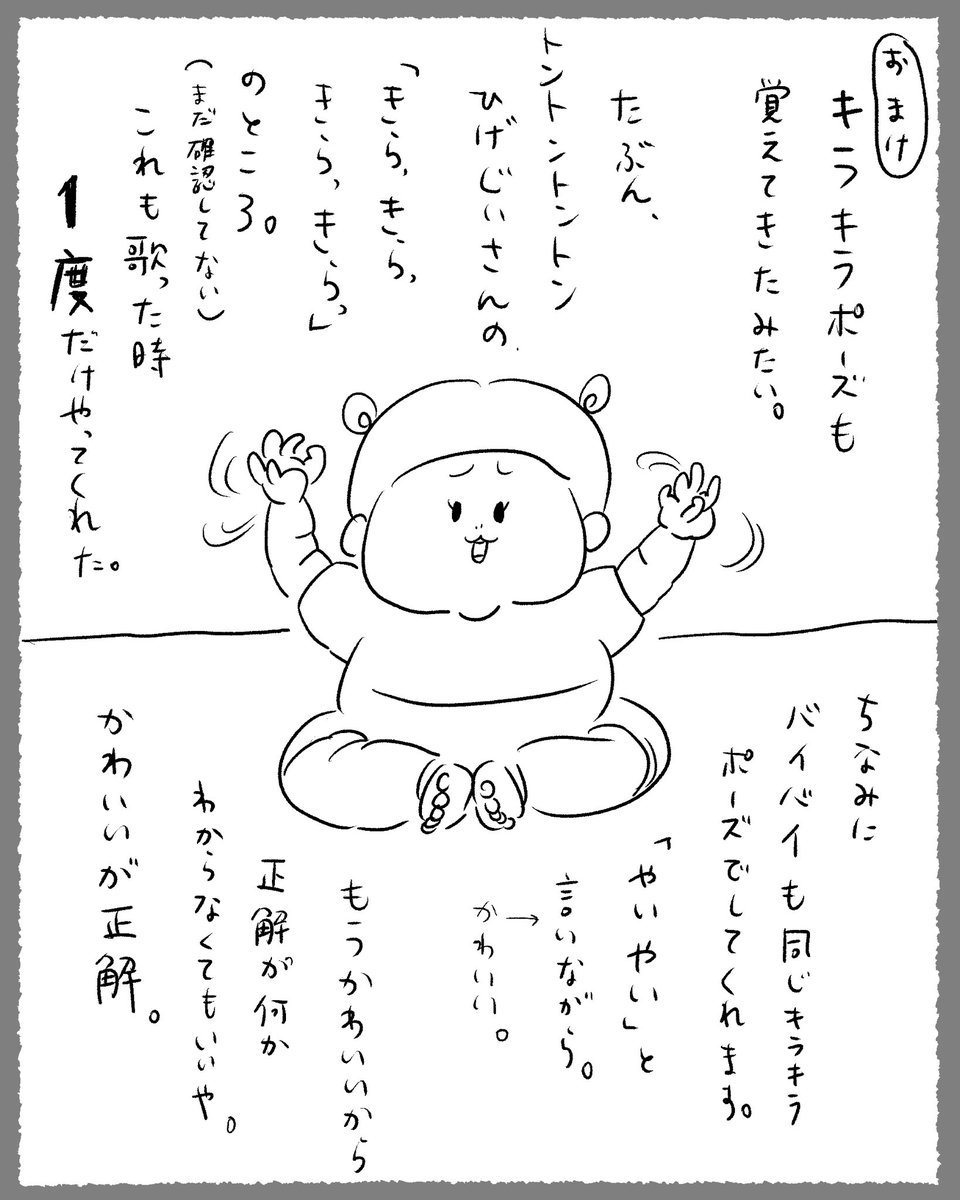 おまけ
キラキラポーズも
覚えてきたみたい。
たぶん、
トントントントン
ひげじいさんの
「きら、きら、
きら、きら、」
のところ。
（まだ確認してない）
これも歌った時
1度だけやってくれた。
ちなみに
バイバイも同じキラキラ
ポーズでしてくれます。
「やいやい」と
言いながら。
→かわいい。
もうかわいいから
正解が何か
わからなくてもいいや。
かわいいが正解。